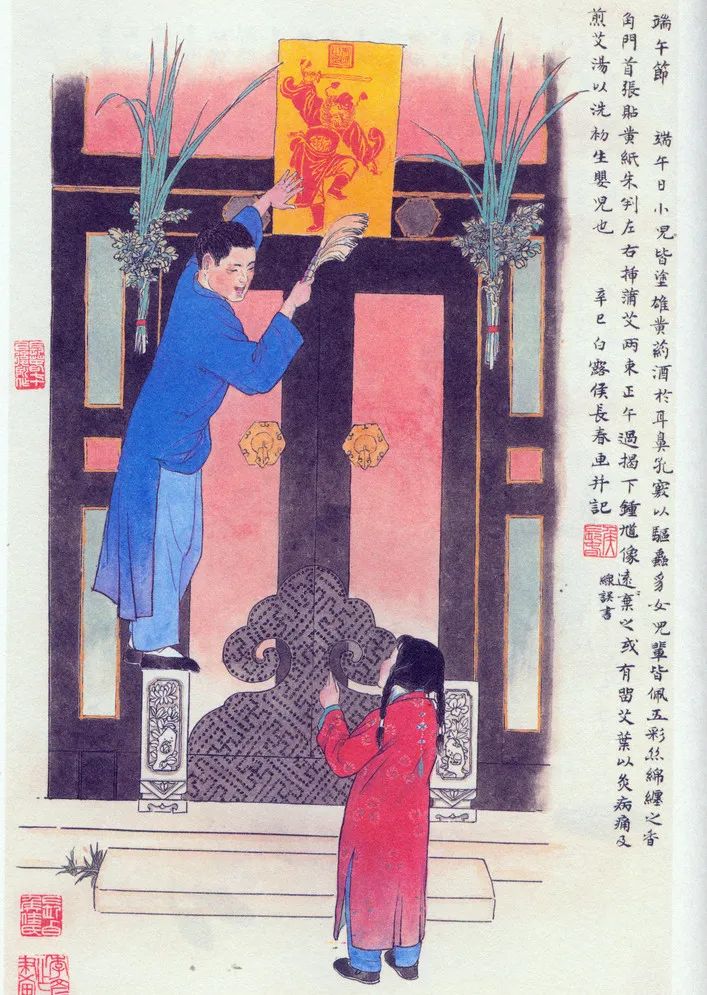 端午節 端午日小兒皆塗雄黃葯酒於耳鼻孔竅以驅蟲豸女兒輩皆佩五彩絲綿纏之香
角門首張貼黃紙朱判左右揷蒲艾兩束正午過揭下鍾馗像遠棄之或有留艾葉以灸病痛及
煎艾湯以洗初生嬰兒也 辛巳白露侯長春画并記
線誤書